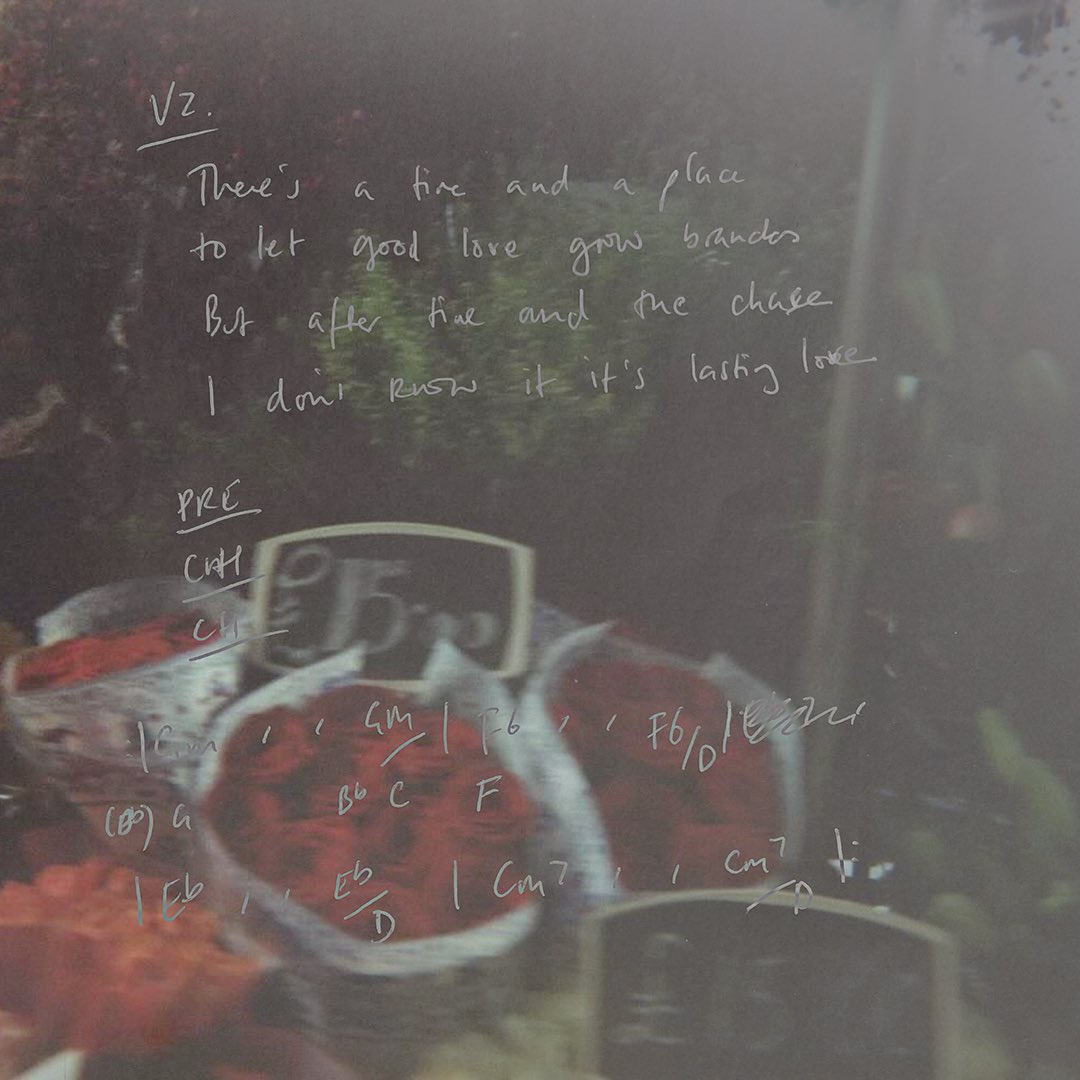 V2.
There's a time and a place
to let good love grow branches
But after time and the chase
I don't know if it's lasting love
PRE
CH
CH
15
| Gm , , Gm | Eb , , Eb/D |
G Bb C F
| Eb , , Eb/D | Cm7 , , Cm7/D |